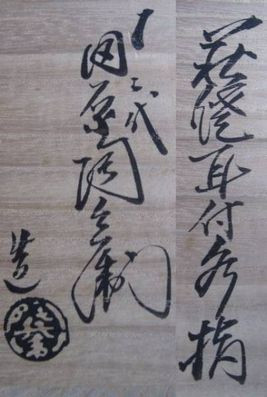 萩燒耳付水指
十二代
田原陶兵衛
造